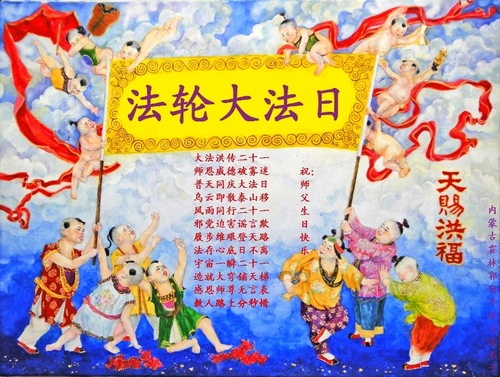 法轮大法日
大法洪传二十一
师恩威德破雾迷
普天同庆大法日
乌云即散泰山移
风雨同行二十一
邪党迫害谣言欺
履步维艰登天路
法存心底日不离
宇宙一瞬二十一
造就大穹铺天梯
感恩师尊无言表
救人路上分秒惜
祝：师父生日快乐
天賜洪福
内蒙古霍林郭